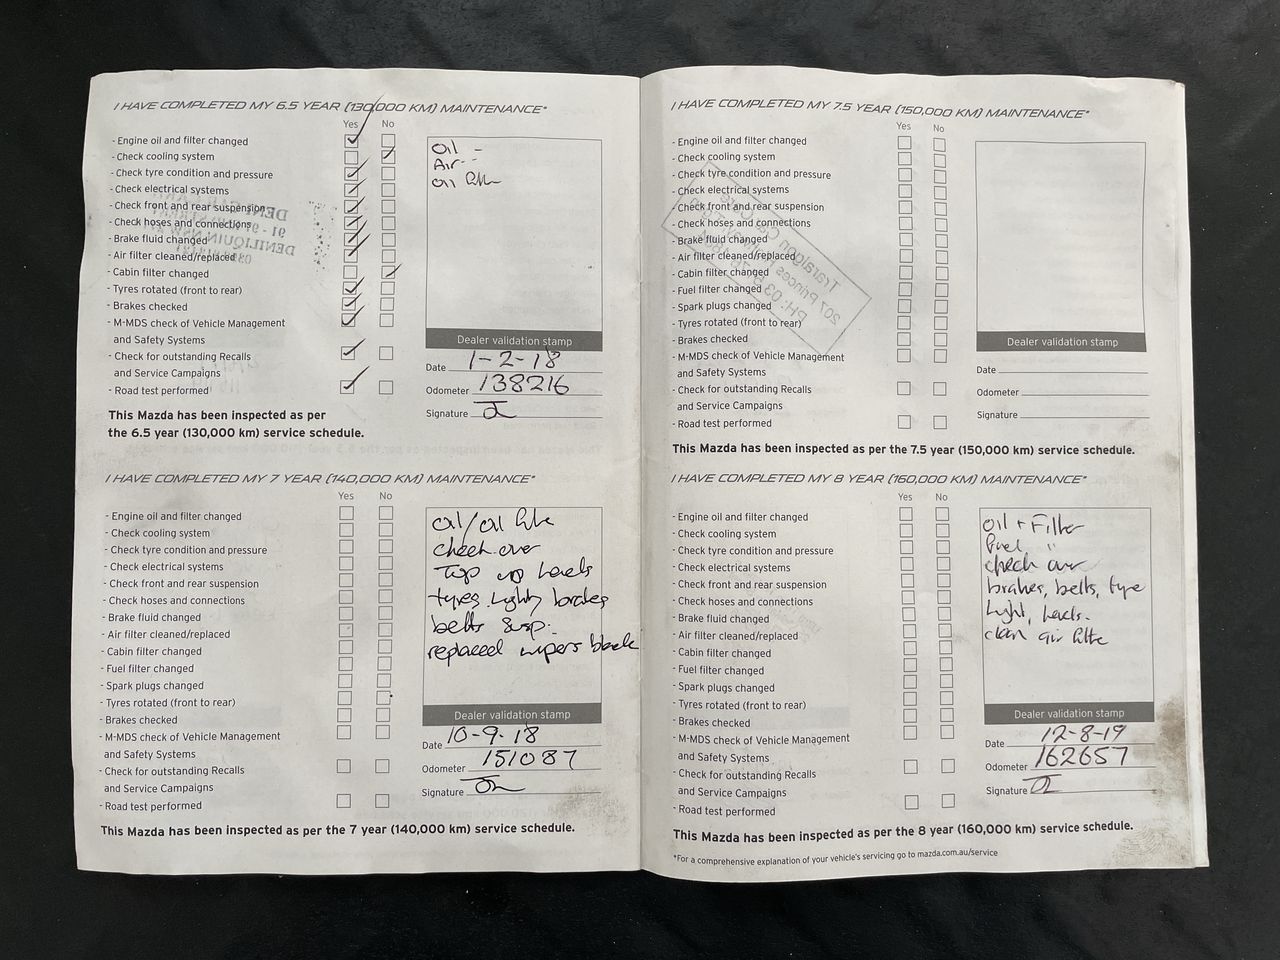 I HAVE COMPLETED MY 6.5 YEAR (130,000 KM) MAINTENANCE*
Yes No
- Engine oil and filter changed
- Check cooling system
- Check tyre condition and pressure
- Check electrical systems
- Check front and rear suspension
- Check hoses and connections
- Brake fluid changed
- Air filter cleaned/replaced
- Cabin filter changed
- Tyres rotated (front to rear)
- Brakes checked
- M-MDS check of Vehicle Management
and Safety Systems
- Check for outstanding Recalls
and Service Campaigns
- Road test performed
Oil -
Air
oil filter
Dealer validation stamp
Date 1-2-18
Odometer 138216
Signature
This Mazda has been inspected as per
the 6.5 year (130,000 km) service schedule.
I HAVE COMPLETED MY 7 YEAR (140,000 KM) MAINTENANCE*
Yes No
- Engine oil and filter changed
- Check cooling system
- Check tyre condition and pressure
- Check electrical systems
- Check front and rear suspension
- Check hoses and connections
- Brake fluid changed
- Air filter cleaned/replaced
- Cabin filter changed
- Fuel filter changed
- Spark plugs changed
- Tyres rotated (front to rear)
- Brakes checked
- M-MDS check of Vehicle Management
and Safety Systems
- Check for outstanding Recalls
and Service Campaigns
- Road test performed
oil/oil filter
check over
Top up levels
tyres lights brakes
belts susp.
replaced wipers blade
Dealer validation stamp
Date 10-9-18
Odometer 151087
Signature
This Mazda has been inspected as per the 7 year (140,000 km) service schedule.
I HAVE COMPLETED MY 7.5 YEAR (150,000 KM) MAINTENANCE*
Yes No
- Engine oil and filter changed
- Check cooling system
- Check tyre condition and pressure
- Check electrical systems
- Check front and rear suspension
- Check hoses and connections
- Brake fluid changed
- Air filter cleaned/replaced
- Cabin filter changed
- Fuel filter changed
- Spark plugs changed
- Tyres rotated (front to rear)
- Brakes checked
- M-MDS check of Vehicle Management
and Safety Systems
- Check for outstanding Recalls
and Service Campaigns
- Road test performed
Dealer validation stamp
Date
Odometer
Signature
This Mazda has been inspected as per the 7.5 year (150,000 km) service schedule.
I HAVE COMPLETED MY 8 YEAR (160,000 KM) MAINTENANCE*
Yes No
- Engine oil and filter changed
- Check cooling system
- Check tyre condition and pressure
- Check electrical systems
- Check front and rear suspension
- Check hoses and connections
- Brake fluid changed
- Air filter cleaned/replaced
- Cabin filter changed
- Fuel filter changed
- Spark plugs changed
- Tyres rotated (front to rear)
- Brakes checked
- M-MDS check of Vehicle Management
and Safety Systems
- Check for outstanding Recalls
and Service Campaigns
- Road test performed
oil + Filter
Fuel "
check over
brakes, belts, tyre
light, levels.
clean air filter
Dealer validation stamp
Date 12-8-19
Odometer 162657
Signature
This Mazda has been inspected as per the 8 year (160,000 km) service schedule.
*For a comprehensive explanation of your vehicle's servicing go to mazda.com.au/service